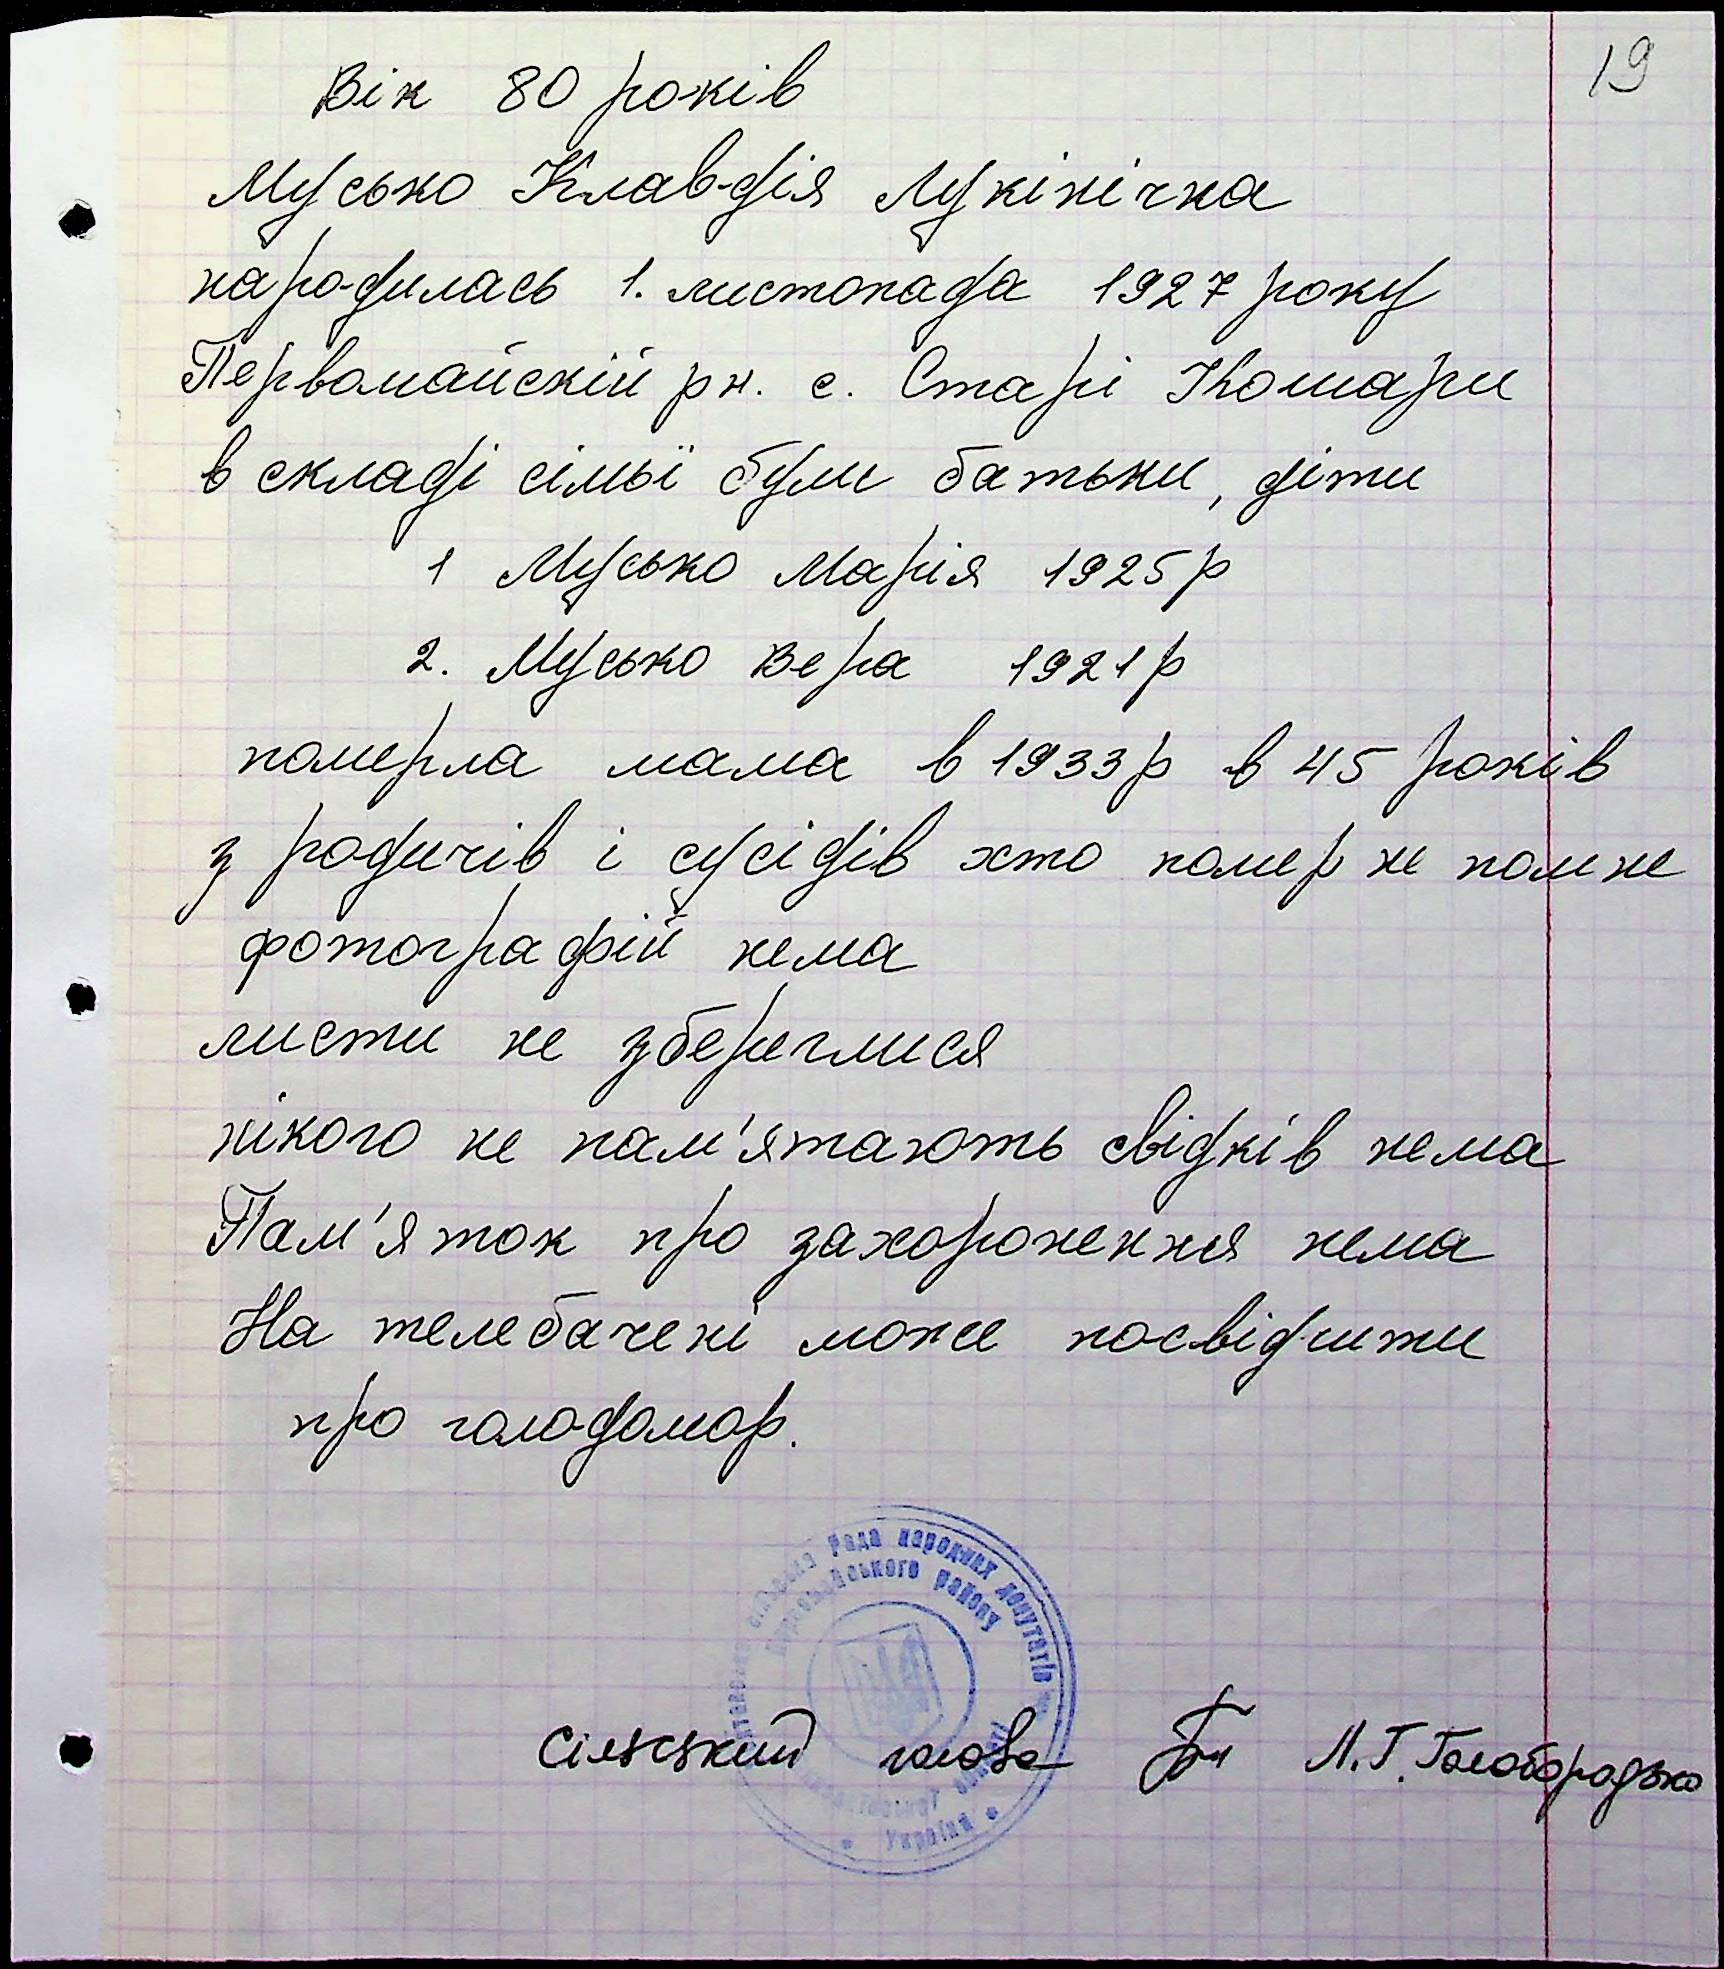 19
Вік 80 років
Мусько Клавдія Лукінічна
народилась 1. листопада 1927 року
Первомайскій рн. с. Старі Кошари
в складі сімьї були батьки, діти
1 Мусько Марія 1925р
2. Мусько Вера 1921р
померла мама в 1933р в 45 років
з родичів і сусідів хто помер не помне
фотографій нема
листи не збериглися
нікого не пам'ятають свідків нема
Пам'яток про захоронення нема
На телебачені може посвідчити
про голодомор.
рада народних депутатів
Первомайського району
Україна
Сільський голова Л.Г. Голобородько